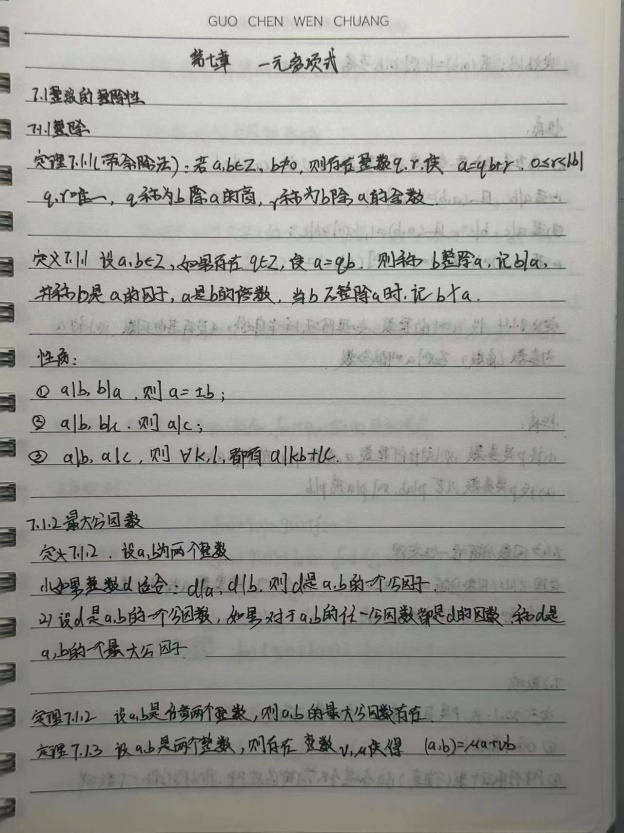 GUO CHEN WEN CHUANG
第七章 一元多项式
7.1 整数的整除性
7.1.1 整除
定理7.1.1(带余除法):若a,b∈Z, b≠0, 则存在整数q,r.使 a=qb+r , 0≤r<|b|
q,r唯一, q称为b除a的商, r称为b除a的余数.
定义7.1.1 设a,b∈Z,如果存在q∈Z,使a=qb, 则称b整除a,记b|a,
并称b是a的因子, a是b的倍数, 当b不整除a时,记b∤a.
性质:
① a|b, b|a ,则 a=±b;
② a|b, b|c .则 a|c;
③ a|b, a|c ,则 ∀k,l,都有 a|kb+lc.
7.1.2 最大公因数
定义7.1.2 . 设a,b为两个整数
1)如果整数d适合:d|a, d|b. 则d是a,b的一个公因子
2) 设d是a,b的一个公因数, 如果对于a,b的任一公因数都是d的因数.称d是
a,b的一个最大公因子
定理7.1.2 设a,b是任意两个整数,则a,b的最大公因数存在.
定理7.1.3 设a,b是两个整数,则存在整数ν,μ使得 (a,b)=μa+νb